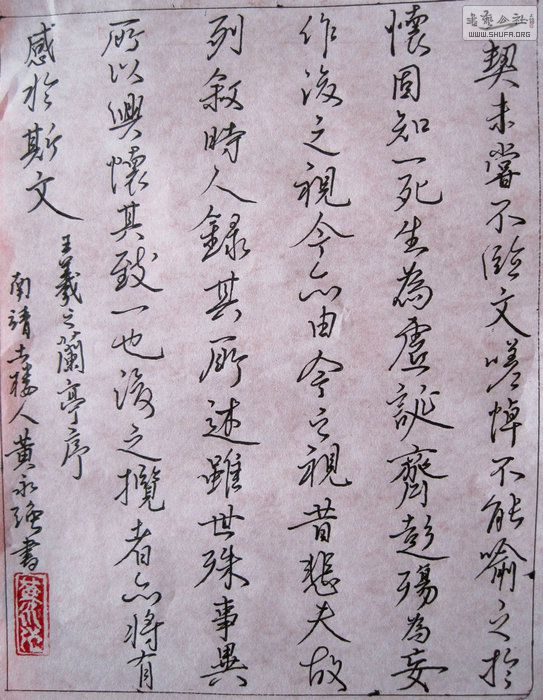 契未嘗不臨文嗟悼不能喻之於
懷固知一死生為虛誕齊彭殤為妄
作後之視今亦由今之視昔悲夫故
列敘時人錄其所述雖世殊事異
所以興懷其致一也後之攬者亦將有
感於斯文
王羲之蘭亭序
南靖土樓人黃永強書
WWW.SHUFA.ORG